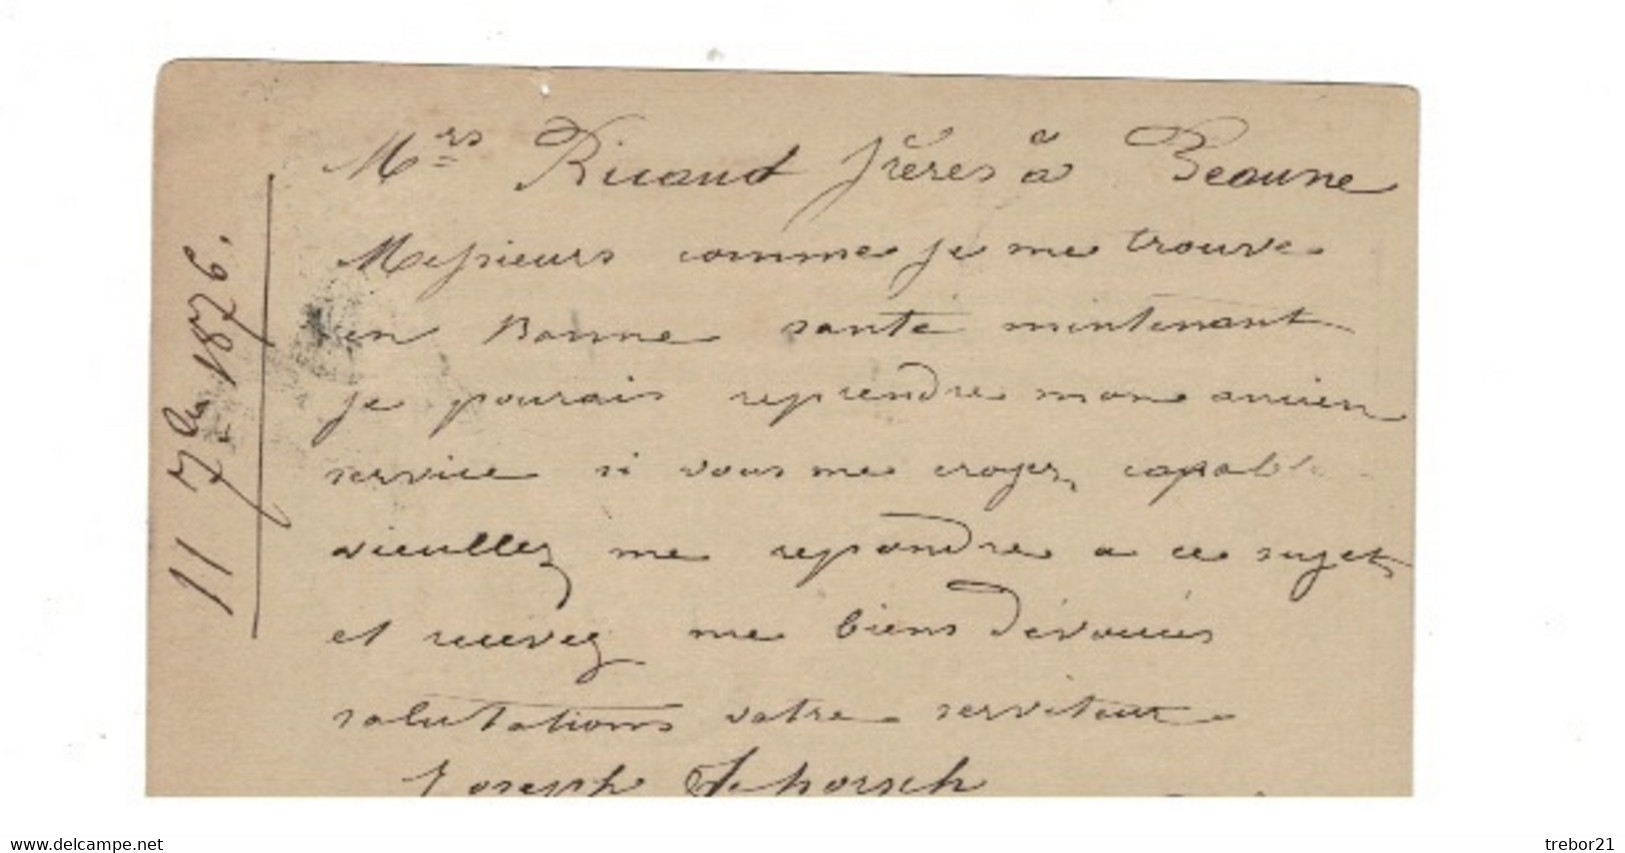 Mrs Ricaud frères à Beaune
Messieurs comme je me trouve
en Bonne santé mintenant
je pourais reprendre mon ancien
service si vous me croyez capable
vieullez me repondre a ce sujet
et recevez me biens dévouées
salutations votre serviteur
Joseph
11 7bre 1876.
www.delcampe.net
trebor21